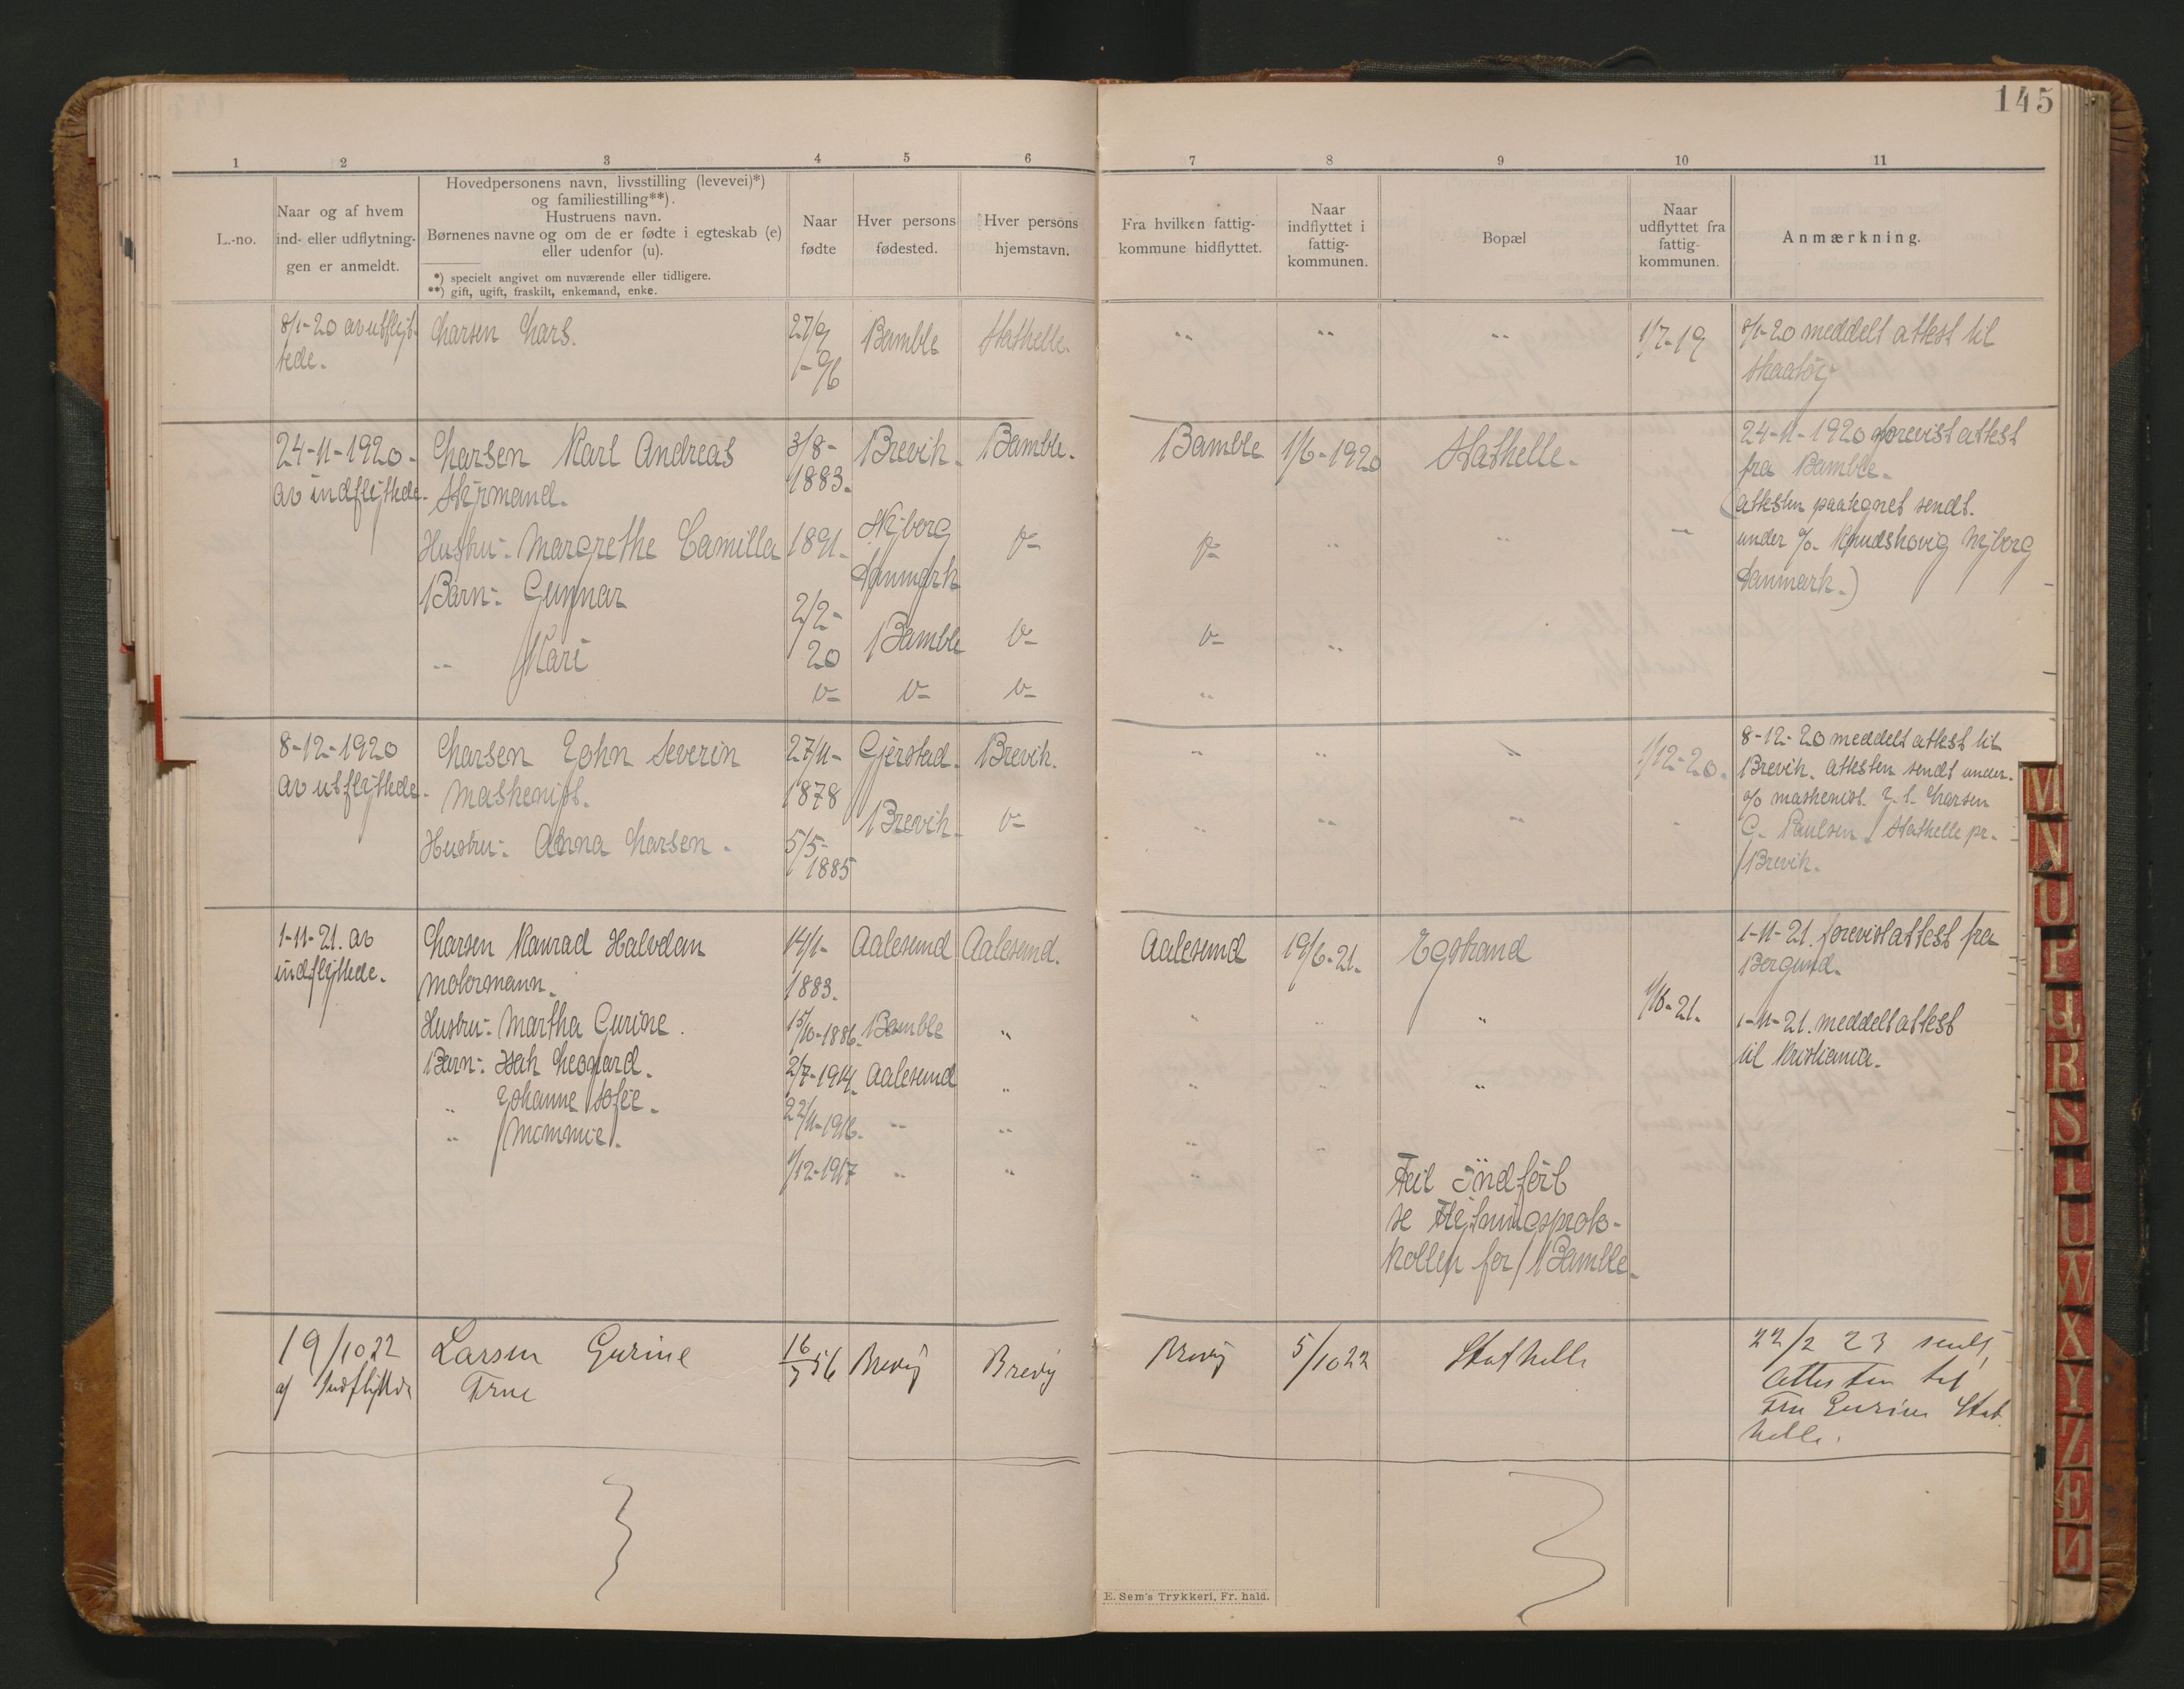 145
1 2 3 4 5 6 7 8 9 10 11
L.-no.
Naar og af hvem
ind- eller udflytnin-
gen er anmeldt.
Hovedpersonens navn, livsstilling (levevei)*)
og familiestilling**).
Hustruens navn.
Børnenes navne og om de er fødte i egteskab (e)
eller udenfor (u).
*) specielt angivet om nuværende eller tidligere.
**) gift, ugift, fraskilt, enkemand, enke.
Naar
fødte
Hver persons
fødested.
Hver persons
hjemstavn.
Fra hvilken fattig-
kommune hidflyttet.
Naar
indflyttet i
fattig-
kommunen.
Bopæl
Naar
udflyttet fra
fattig-
kommunen.
Anmærkning.
8/1-20 av utflyt-
tede.
Larsen Lars.
27/9
Bamble
Stathelle.
" " "
1/7-19
8/1-20 meddelt attest til
Skaatöy
24-11-1920.
av indflyttede.
Larsen Karl Andreas
Styrmand.
Hustru: Margrethe Camilla
Barn: Gunnar
" Kari
3/8-
1883.
1891.
2/2-
20
Brevik.
Nyborg
Danmark
Bamble
Bamble.
Bamble
1/6-1920
Stathelle.
24-11-1920 forevist attest
fra Bamble.
(attesten paategnet sendt.
under o/- Knudshovig Nyborg
Danmark.)
8-12-1920
av utflyttede.
Larsen John Severin
Maskenist.
Hustru: Anna Larsen.
27/11-
1878
5/5-
1885
Gjerstad.
Brevik.
Brevik.
1/12-20.
8-12-20 meddelt attest til
Brevik. attesten sendt under.
o/o maskenist J. S. Larsen
C. Paulsen Stathelle pr.
Brevik.
1-11-21. av
indflyttede.
Larsen Konrad Halvdan
Motormann.
Hustru: Martha Gurine.
Barn: Isak Leonard.
" Johanne Sofie.
" Mimmie.
14/1-
1883.
15/10-1886.
2/7-1914.
22/11-1916.
1/12-1917
Aalesund
Bamble
Aalesund
Aalesund.
Aalesund
19/6-21.
Egstrand
1-11-21. forevist attest fra
Borgund.
1-11-21. meddelt attest
til Kristiania.
Feil indført
se Flytningsproto-
kollen for Bamble.
19/10 22
af Indflyttede
Larsen Gurine
Frue
16/7 56
Brevig
Brevig
Brevig
5/10 22
Stathelle
22/2 23 sendt
Attesten til
Fru Gurine Stat
helle.
E. Sem's Trykkeri, Fr. hald.
M
N
O
P
Q
R
S
T
U
V
X
Y
Z
Æ